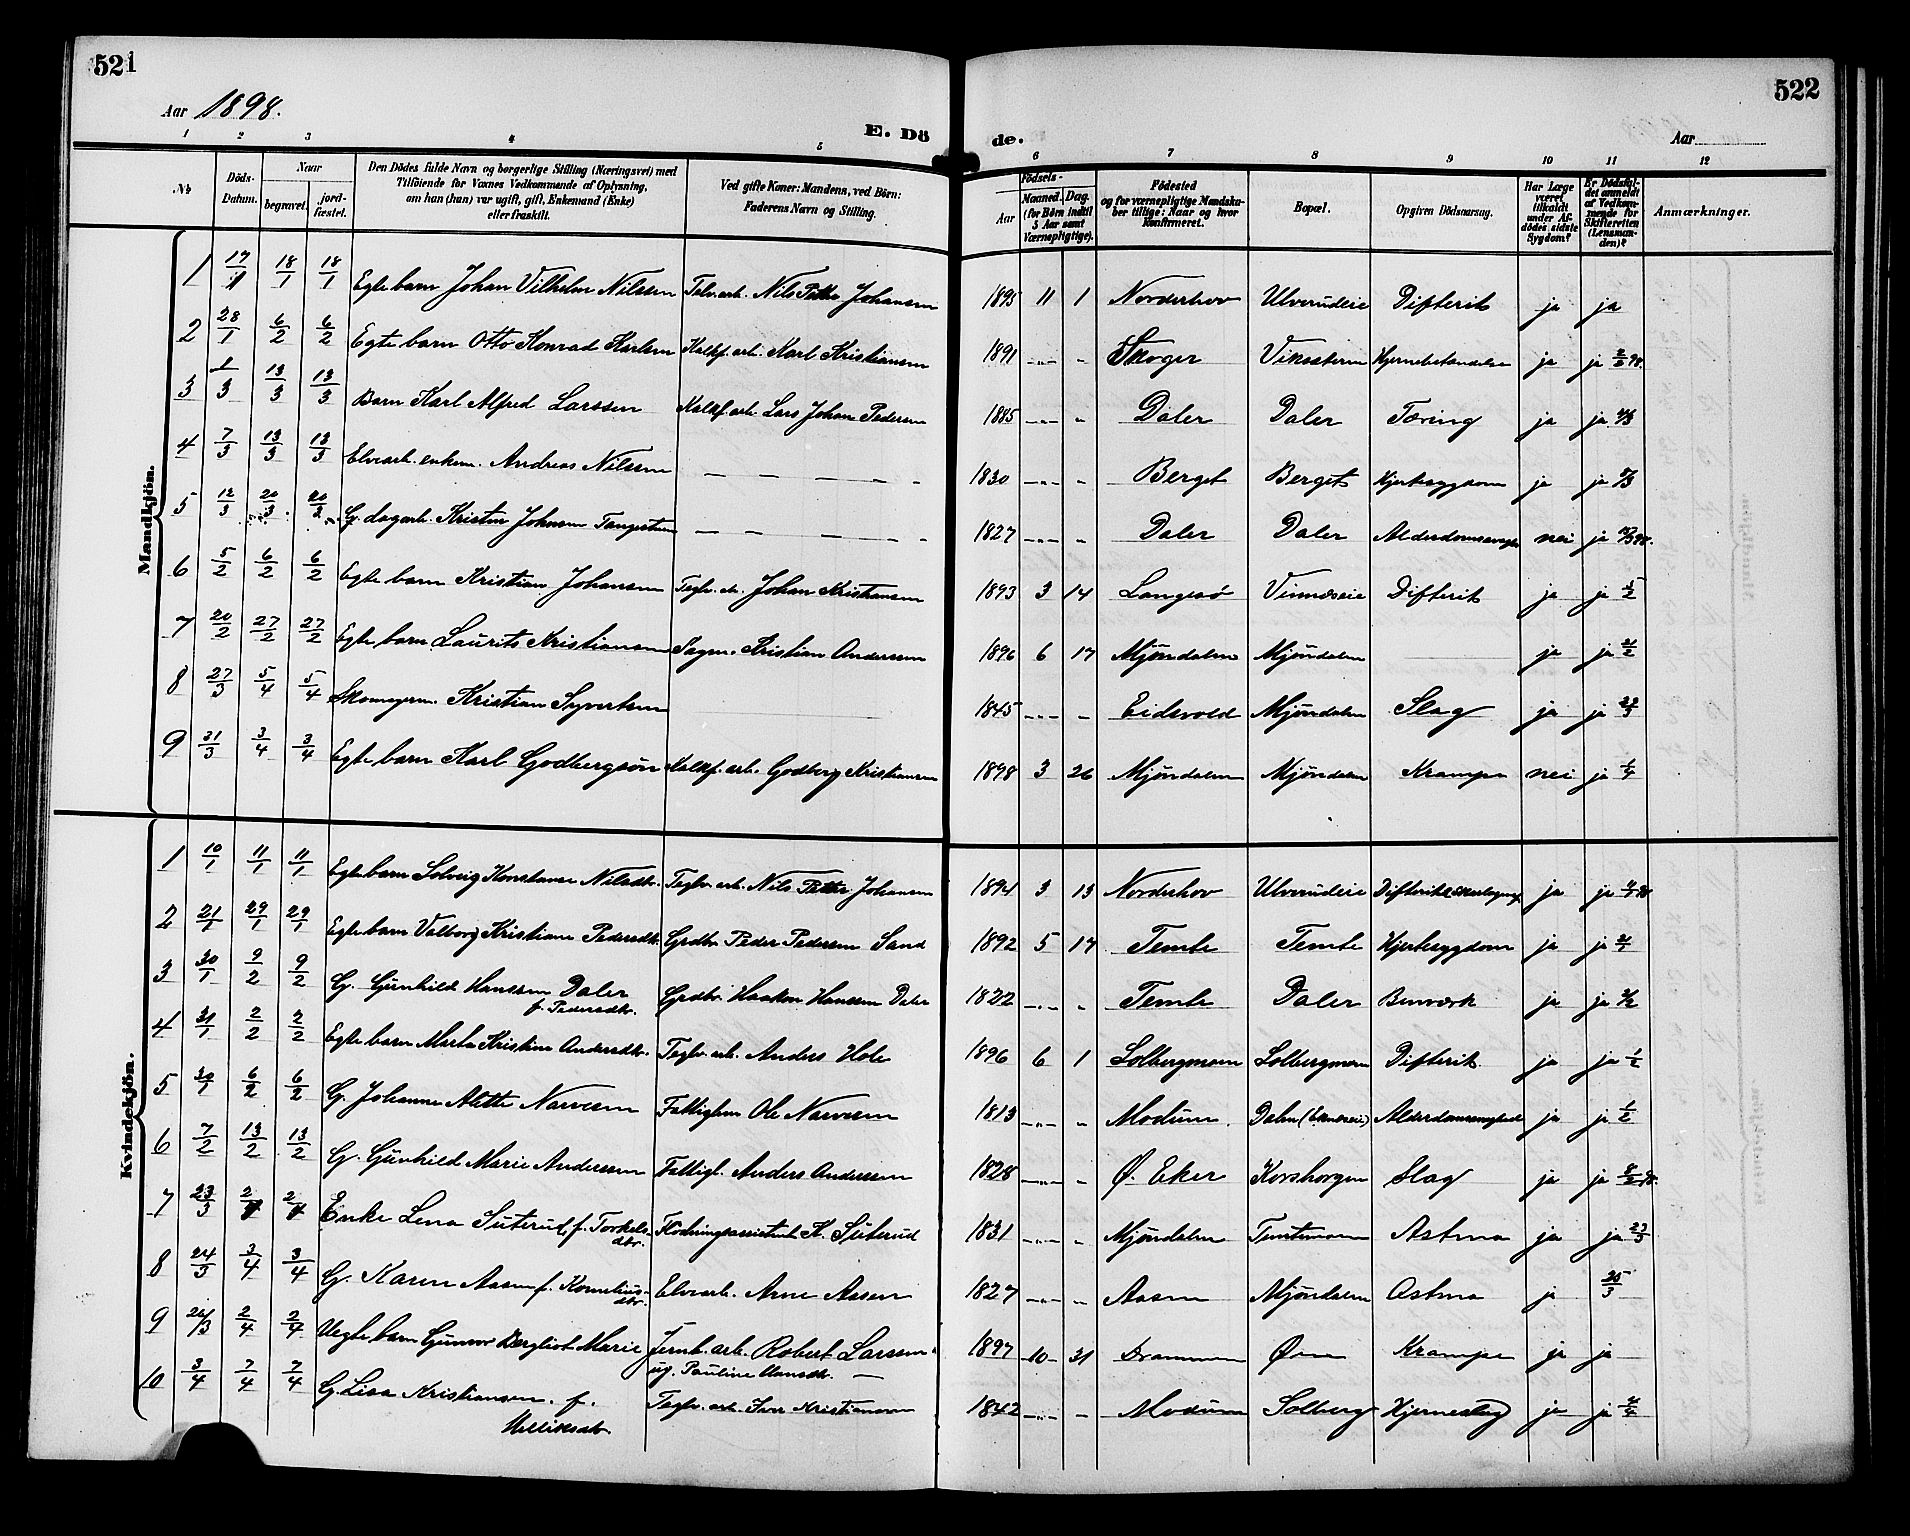 521
522
Aar 1898.
Aar
E. Dö
de.
1 2 3 4 5
6 7 8 9 10 11 12
No
Döds-Datum.
Naar
begravet.
jord-fæstet.
Den Dödes fulde Navn og borgerlige Stilling (Næringsvei) med
Tilföiende for Voxnes Vedkommende af Oplysning,
om han (hun) var ugift, gift, Enkemand (Enke)
eller fraskilt.
Ved gifte Koner: Mandens, ved Börn:
Faderens Navn og Stilling.
Födsels-
Aar
Maaned. Dag.
(for Börn indtil
5 Aar samt
Værnepligtige).
Födested
og for værnepligtige Mandska-
ber tillige: Naar og hvor
Konfirmeret.
Bopæl.
Opgiven Dödsaarsag.
Har Læge
været
tilkaldt
under Af-
dödes sidste
Sygdom?
Er Dödsfal-
det anmeldt
af Vedkom-
mende for
Skifteretten
(Lensman-
den)?
Anmærkninger.
Mandkjön.
1 17/1 18/1 18/1 Egte barn Johan Vilhelm Nilssen Telv. arb. Nils Petter Johansen 1895 11 1 Norderhov Ulverudeie Difterit ja ja
2 28/1 6/2 6/2 Egte barn Otto Konrad Karlsen Kalkf. arb. Karl Kristiansen 1891 -„- - Skoger Viksæteren Hjernebetændelse ja ja 2/2 98.
3 1/3 13/3 13/3 Barn Karl Alfred Larssen Kalkf. arb. Lars Johan Pedersen 1885 -„- - Daler Daler Tæring ja ja
4 7/3 13/3 13/3 Elvearb. enkem. Andreas Nilssen — — — — - 1830 -„- - Berget Berget Hjertesygdom ja ja 8/3
5 12/3 20/3 20/3 G. dagarb. Kristen Johnsen Tangestuen — — — — - 1827 -„- - Daler Daler Alderdomssvaghed nei ja
6 5/2 6/2 6/2 Egte barn Kristian Johansen Teglv. arb. Johan Kristiansen 1893 3 14 Langesø Vinnæseie Difterit ja ja 5/2
7 20/2 27/2 27/2 Egte barn Laurits Kristiansen Sagm. Kristian Anderssen 1896 6 17 Mjøndalen Mjøndalen — ja ja 21/2
8 27/3 5/4 5/4 Skomagerm. Kristian Syvertsen — 1845 -„- - Eidsvold Mjøndalen Slag ja ja
9 31/3 3/4 3/4 Egte barn Karl Godbergsøn Kalkf. arb. Godberg Kristiansen 1898 3 26 Mjøndalen Mjøndalen Krampe nei ja 1/4
Kvindekjön.
1 10/1 11/1 11/1 Egte barn Solveig Konstanse Nilsdtr. Teglv. arb. Nils Petter Johansen 1894 3 13 Norderhov Ulverudeie Difterit ja ja
2 21/1 29/1 29/1 Egte barn Valborg Kristiane Pedersdtr. Grdbr. Peder Pedersen Sand 1892 5 17 Temte Temte Hjertesygdom ja ja
3 30/1 9/2 9/2 G. Gunhild Hanssen Daler Grdbr. Haakon Hanssen Daler 1822 -„- - Temte Daler Benværk ja ja
f. Pedersdtr.
4 31/1 2/2 2/2 Egte barn Marta Kristine Andersdtr. Teglv. arb. Anders Hole 1896 6 1 Solbergmoen Solbergmoen Difterit ja ja 1/2
5 30/1 6/2 6/2 G. Johanne Alette Narvesen Fattiglem Ole Narvesen 1813 -„- - Modum. Dalen Alderdomssvaghed ja ja 1/2
6 7/2 13/2 13/2 G. Gunhild Marie Anderssen Fattigl. Anders Anderssen 1828 -„- - Ø. Eker Korshorgen Slag ja ja 8/2 98.
7 23/3 2/4 2/4 Enke Lena Suterud f. Torkels- Flødningsassistent K. Suterud 1831 -„- - Mjøndalen Astma ja ja 23/3
dtr.
8 24/3 3/4 3/4 G. Karen Aasen f. Kornelius- Elvearb. Arne Aasen 1827 -„- - Aasen Mjøndalen Astma ja 25/3
dtr.
9 26/3 2/4 2/4 Uegte barn Gunvor Bergliot Marie Jernb. arb. Robert Larssen 1897 -10- 31 Drammen Øen Krampe ja ja —
ug. Pauline Hansdtr. —
10 3/4 7/4 7/4 G. Lisa Kristiansen. f. Teglv. arb. Iver Kristiansen 1842 -„- - Modum Solberg Hjerneslag ja ja 4/4